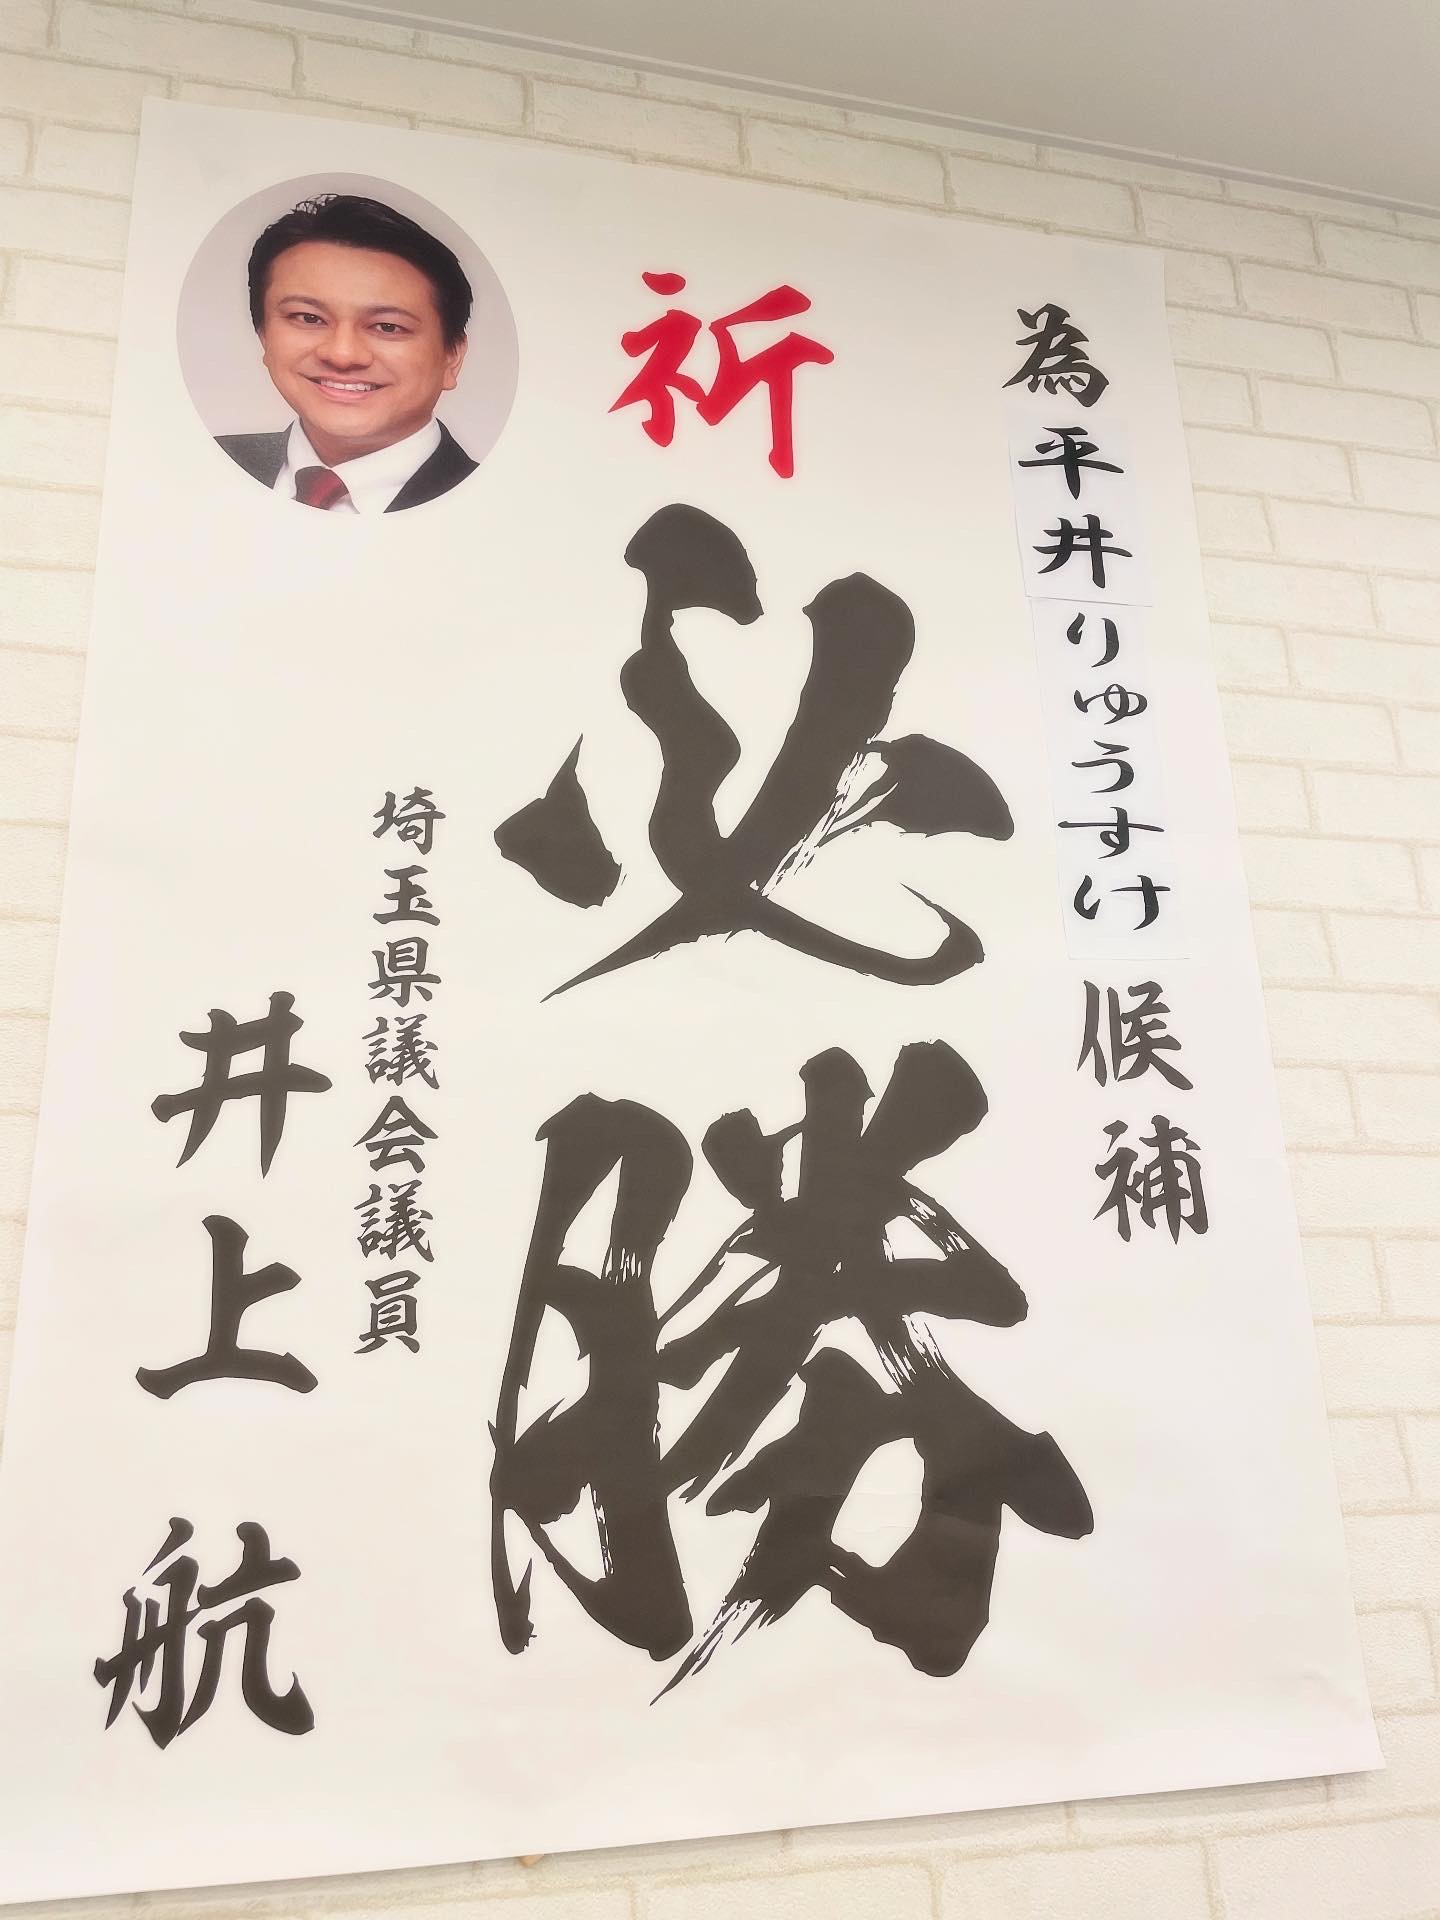 為平井りゅうすけ候補
祈
必勝
埼玉県議会議員
井上航